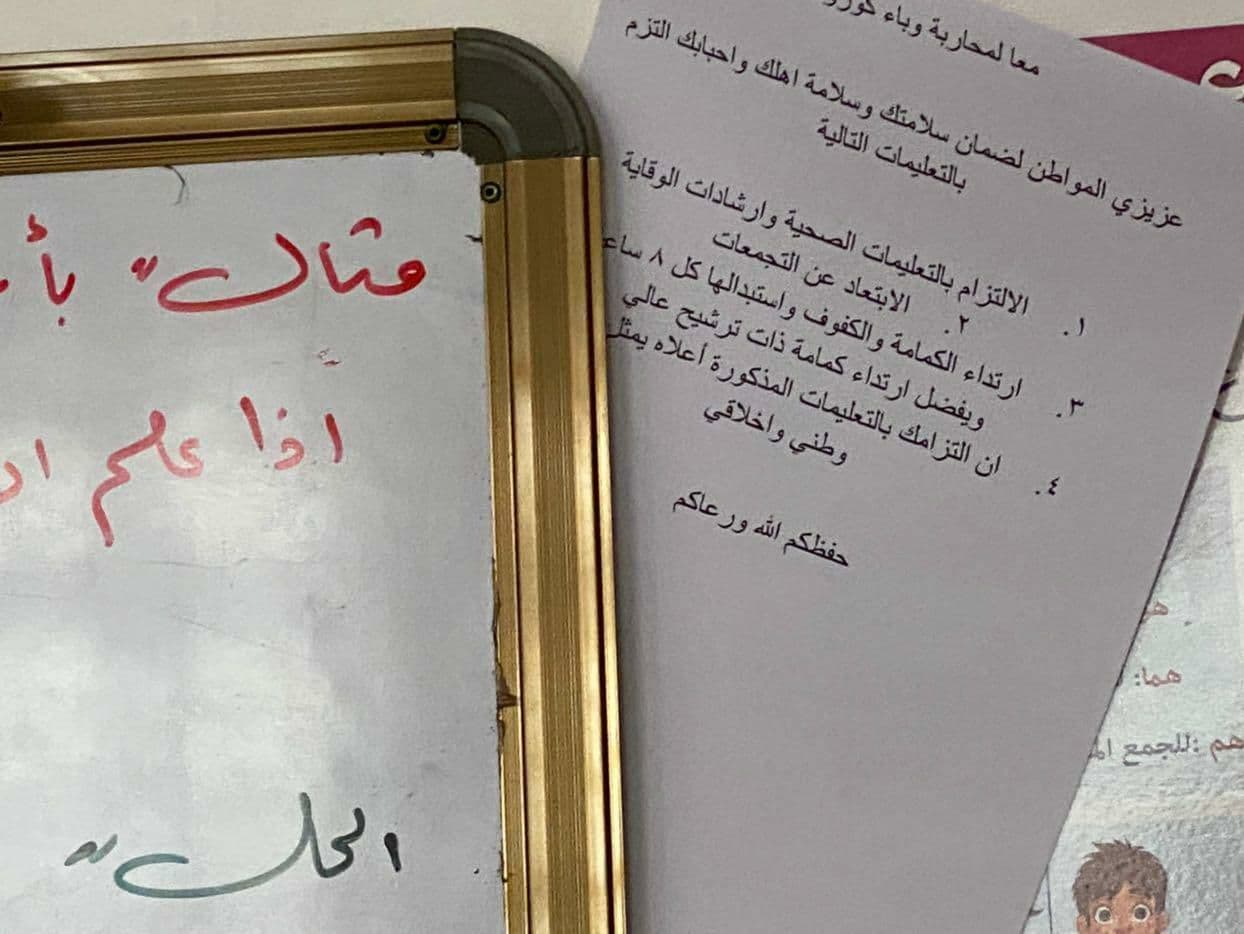 معا لمحاربة وباء
عزيزي المواطن لضمان سلامتك وسلامة اهلك واحبابك التزم
بالتعليمات التالية
١. الالتزام بالتعليمات الصحية وارشادات الوقاية
٢. الابتعاد عن التجمعات
٣. ارتداء الكمامة والكفوف واستبدالها كل ٨ ساع
ويفضل ارتداء كمامة ذات ترشيح عالي
٤. ان التزامك بالتعليمات المذكورة أعلاه يمثل
وطني واخلاقي
حفظكم الله ورعاكم
مثال" بأ
اذا علم
الحل"
هما:
هم :للجمع